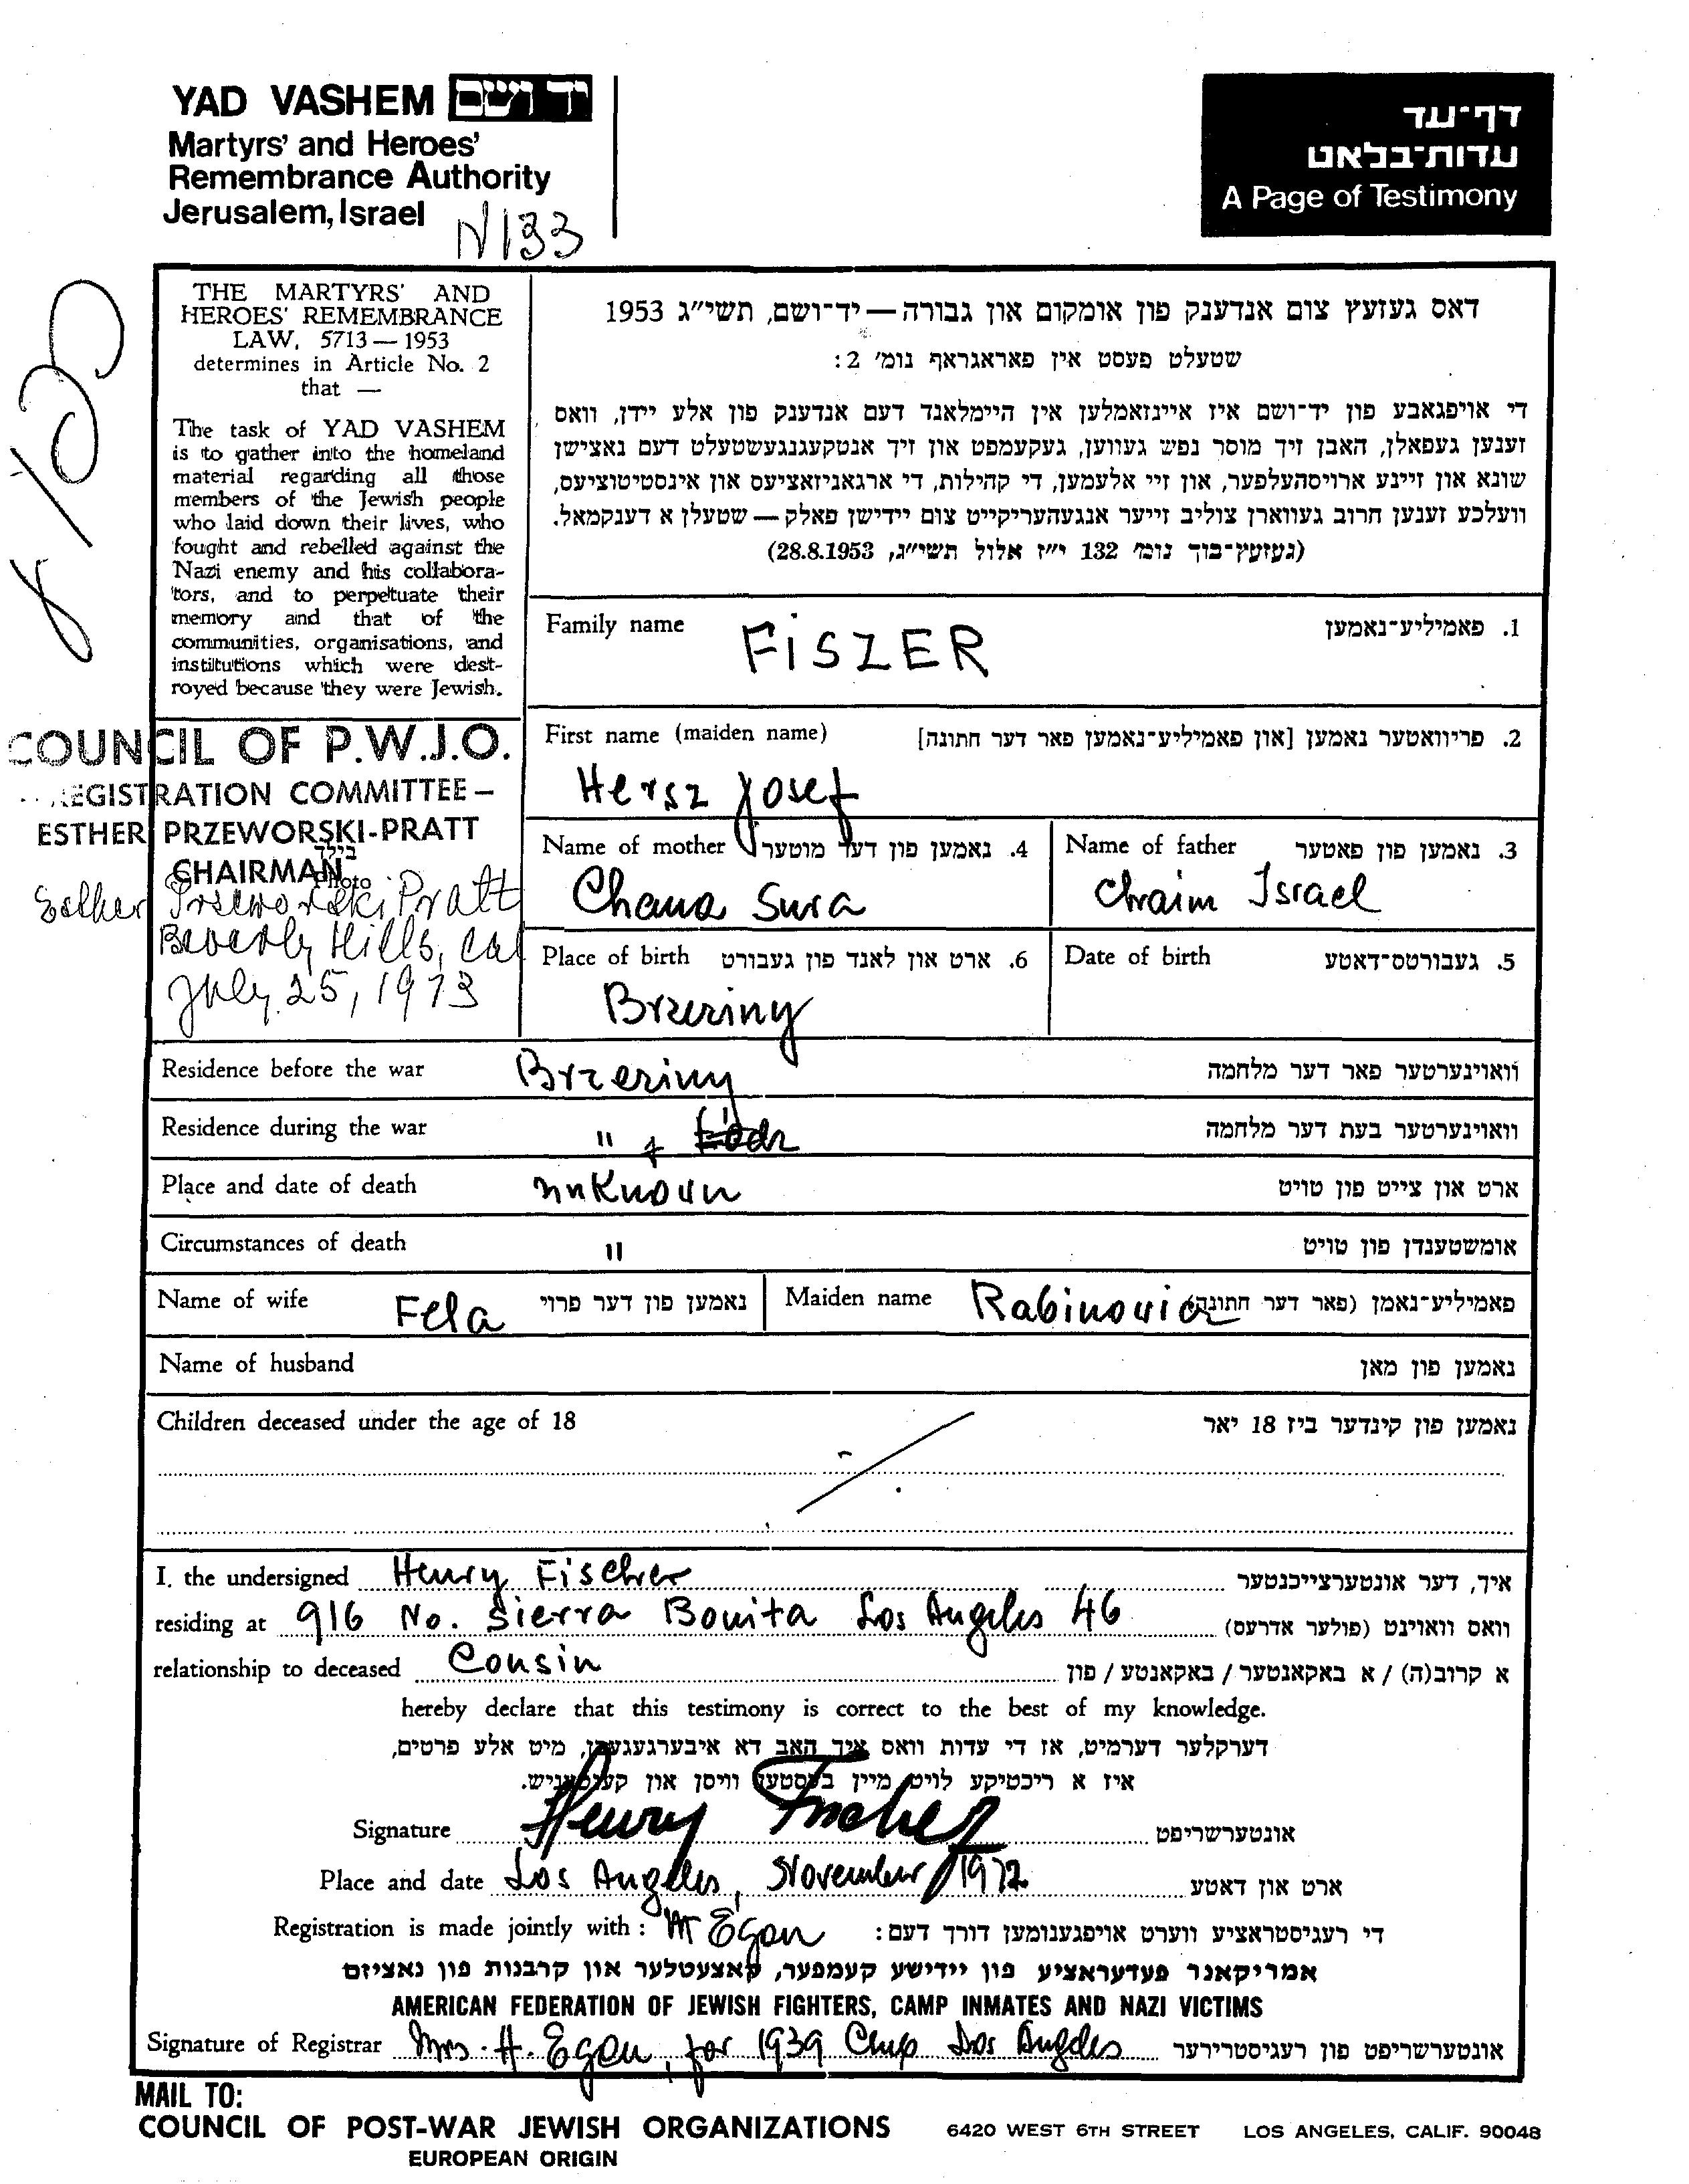 YAD VASHEM יד ושם
Martyrs' and Heroes'
Remembrance Authority
Jerusalem, Israel
N133
דף־עד
עדות־בלאט
A Page of Testimony
THE MARTYRS' AND
HEROES' REMEMBRANCE
LAW, 5713 — 1953
determines in Article No. 2
that —
The task of YAD VASHEM
is to gather into the homeland
material regarding all those
members of the Jewish people
who laid down their lives, who
fought and rebelled against the
Nazi enemy and his collabora-
tors, and to perpetuate their
memory and that of the
communities, organisations, and
institutions which were dest-
royed because they were Jewish.
דאס געזעץ צום אנדענק פון אומקום און גבורה — יד־ושם, תשי״ג 1953
שטעלט פעסט אין פאראגראף נומ׳ 2:
די אויפגאבע פון יד־ושם איז איינזאמלען אין היימלאנד דעם אנדענק פון אלע יידן, וואס
זענען געפאלן, האבן זיך מוסר נפש געווען, געקעמפט און זיך אנטקעגנגעשטעלט דעם נאצישן
שונא און זיינע ארויסהעלפער, און זיי אלעמען, די קהילות, די ארגאניזאציעס און אינסטיטוציעס,
וועלכע זענען חרוב געווארן צוליב זייער אנגעהעריקייט צום יידישן פאלק — שטעלן א דענקמאל.
(געזעץ־בוך נומ׳ 132 י״ז אלול תשי״ג, 28.8.1953)
Family name FISZER 1. פאמיליע־נאמען
First name (maiden name) 2. פריוואטער נאמען [און פאמיליע־נאמען פאר דער חתונה]
Hersz Josef
COUNCIL OF P.W.J.O.
REGISTRATION COMMITTEE –
ESTHER PRZEWORSKI-PRATT
CHAIRMAN
בילד
Photo
Esther Przeworski Pratt
Beverly Hills, Cal
July 25, 1973
Name of mother 4. נאמען פון דער מוטער Name of father 3. נאמען פון פאטער
Chana Sura Chaim Israel
Place of birth 6. ארט און לאנד פון געבורט Date of birth 5. געבורטס־דאטע
Brzeziny
Residence before the war Brzeziny וואוינערטער פאר דער מלחמה
Residence during the war " + Łódz וואוינערטער בעת דער מלחמה
Place and date of death unknown ארט און צייט פון טויט
Circumstances of death " אומשטענדן פון טויט
Name of wife Fela נאמען פון דער פרוי Maiden name Rabinovicz פאמיליע־נאמן (פאר דער חתונה)
Name of husband נאמען פון מאן
Children deceased under the age of 18 נאמען פון קינדער ביז 18 יאר
I, the undersigned Henry Fischer איך, דער אונטערצייכנטער
residing at 916 No. Sierra Bonita Los Angeles 46 וואס וואוינט (פולער אדרעס)
relationship to deceased Cousin א קרוב(ה) / א באקאנטער / באקאנטע / פון
hereby declare that this testimony is correct to the best of my knowledge.
דערקלער דערמיט, אז די עדות וואס איך האב דא איבערגעגעבן, מיט אלע פרטים,
איז א ריכטיקע לויט מיין בעסטער וויסן און קענטעניש.
Signature Henry Fischer אונטערשריפט
Place and date Los Angeles, November 1972 ארט און דאטע
Registration is made jointly with : M Egan די רעגיסטראציע ווערט אויפגענומען דורך דעם:
אמריקאנר פעדעראציע פון יידישע קעמפער, קאצעטלער און קרבנות פון נאציזם
AMERICAN FEDERATION OF JEWISH FIGHTERS, CAMP INMATES AND NAZI VICTIMS
Signature of Registrar Mrs. H. Egan, for 1939 Club Los Angeles אונטערשריפט פון רעגיסטרירער
MAIL TO:
COUNCIL OF POST-WAR JEWISH ORGANIZATIONS 6420 WEST 6TH STREET LOS ANGELES, CALIF. 90048
EUROPEAN ORIGIN